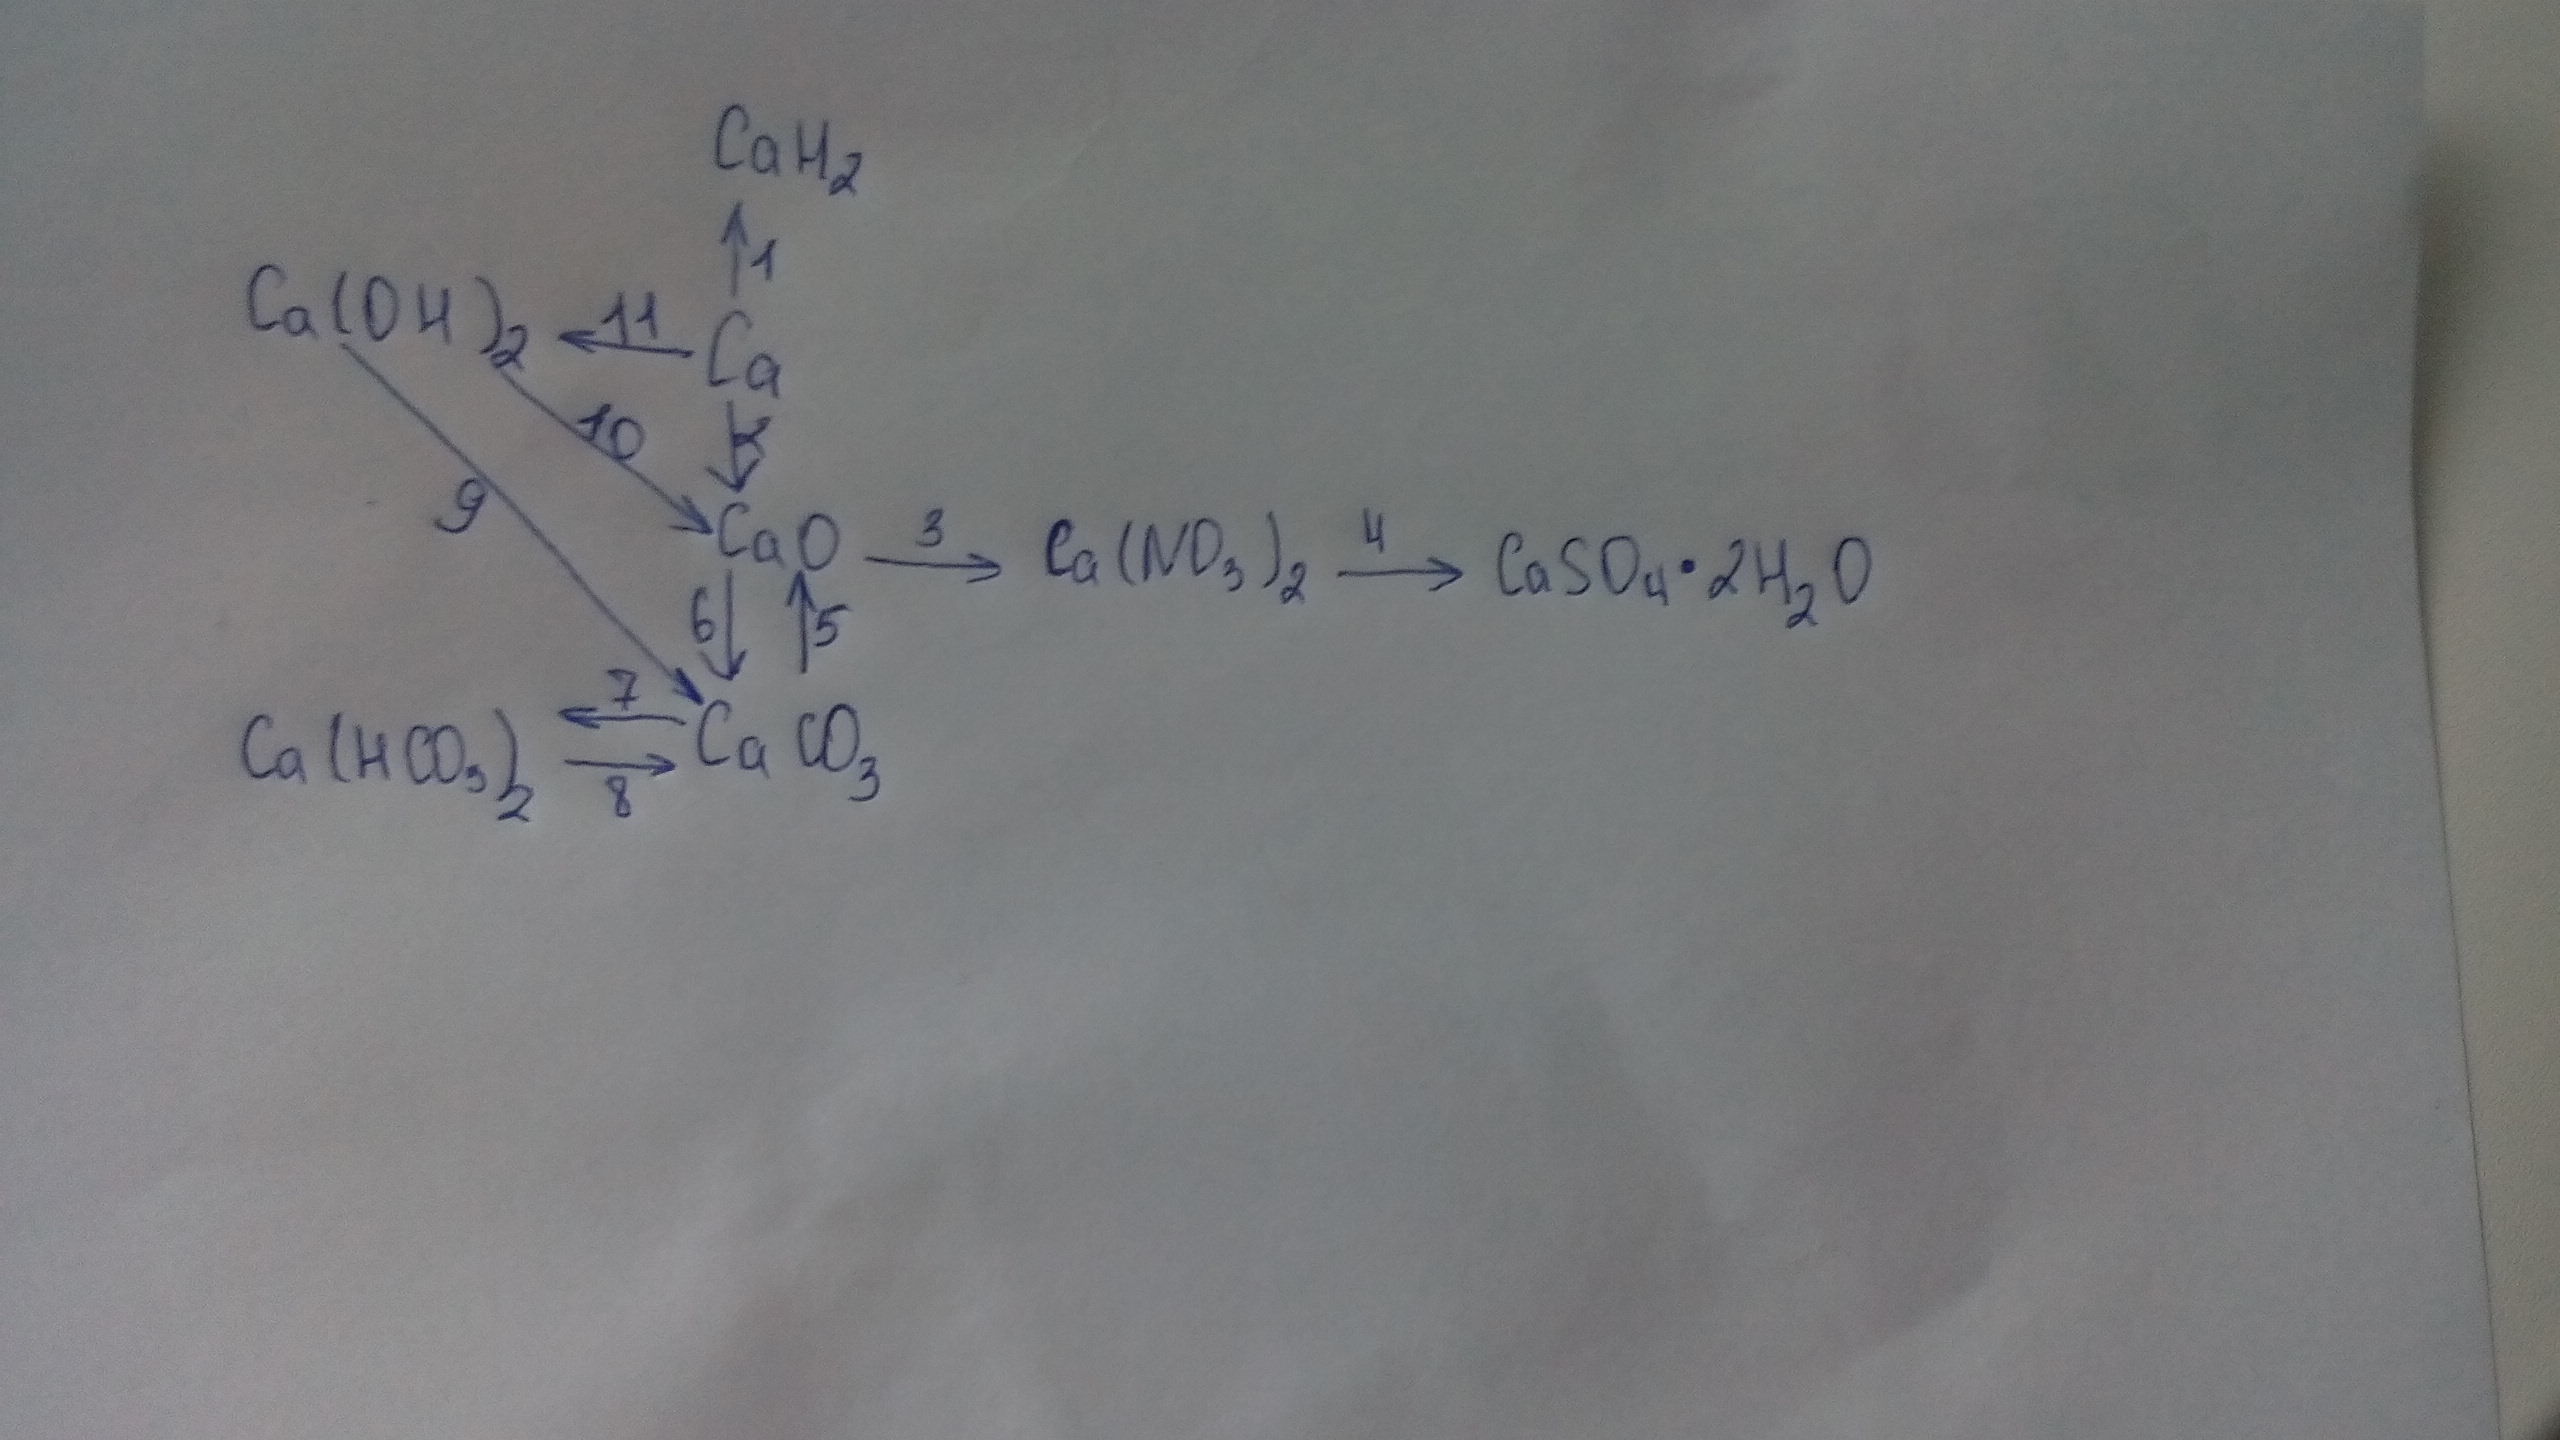 CaH₂
↑1
Ca(OH)₂ ←11 Ca
10 ↓2
9 CaO →3 Ca(NO₃)₂ →4 CaSO₄·2H₂O
6↓ ↑5
Ca(HCO₃)₂ ←7 →8 CaCO₃